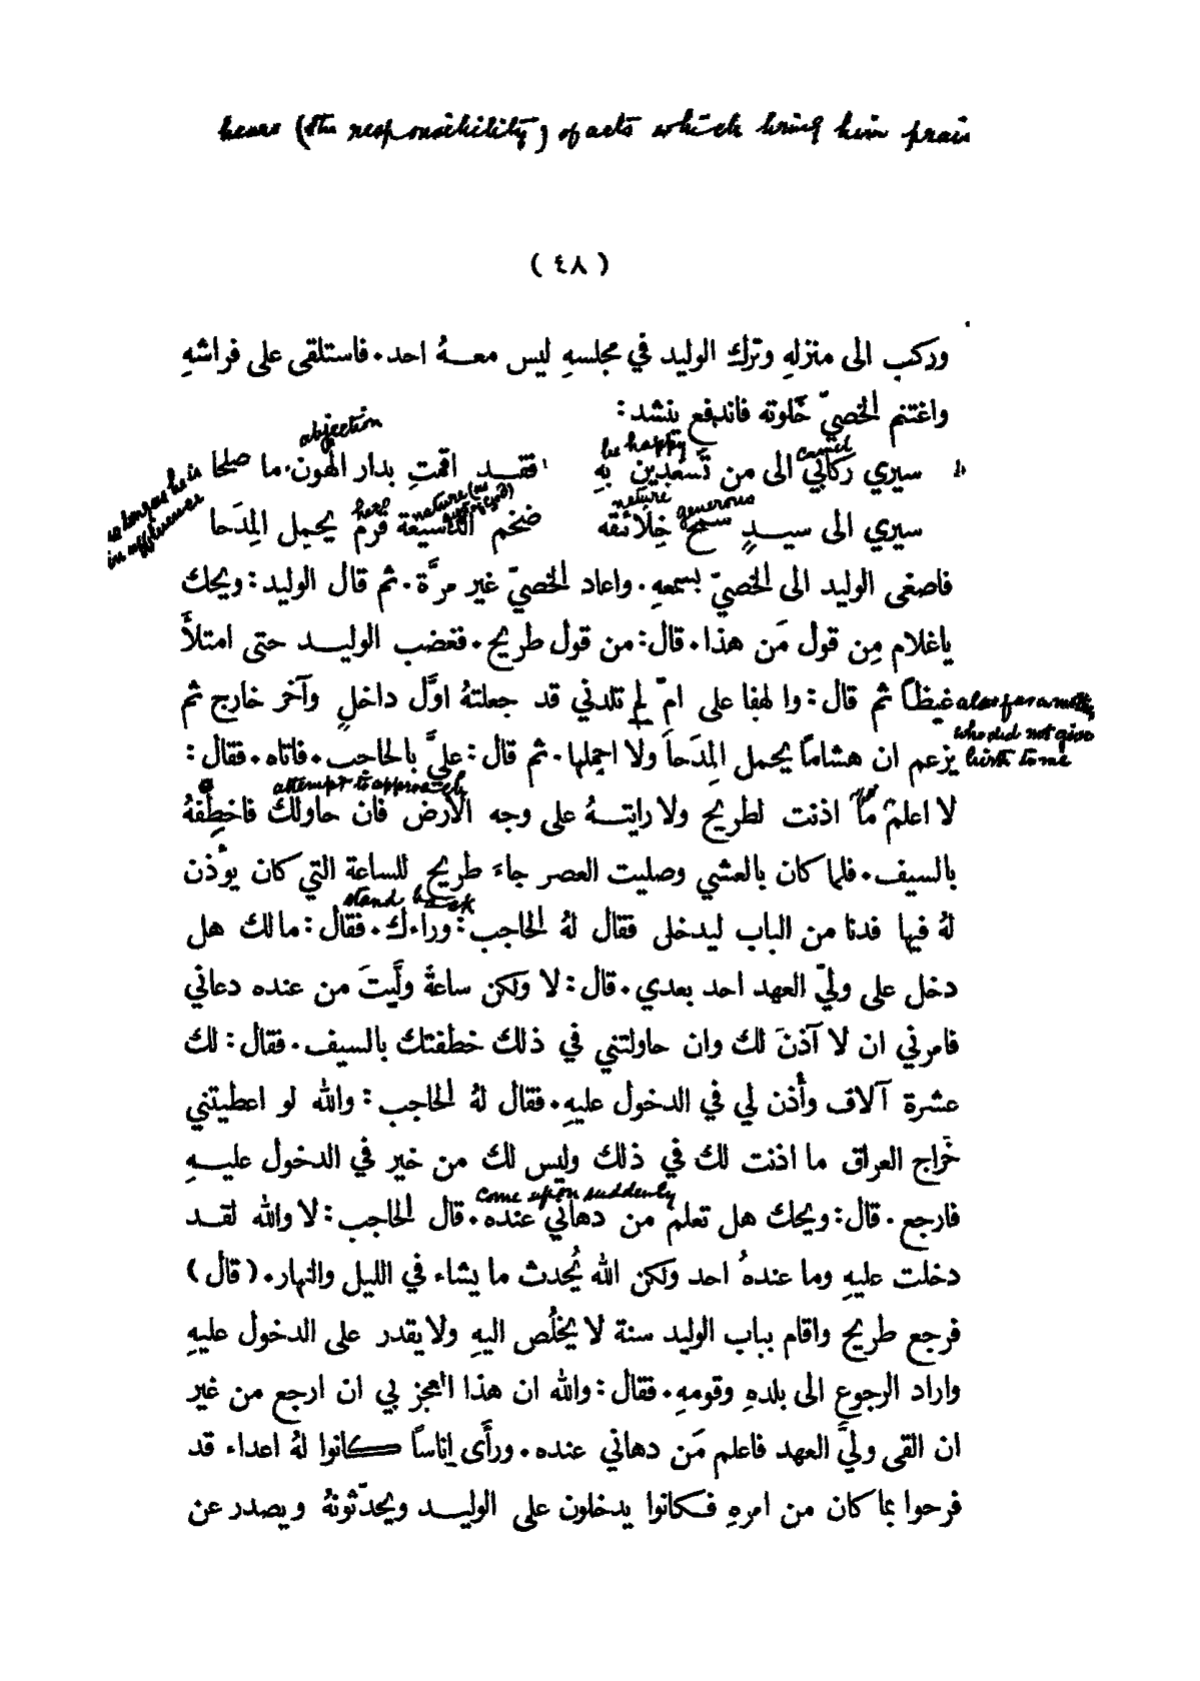 bears (the responsibility) of acts which bring him prais
( ٤٨ )
وركب الى منزلهِ وترك الوليد في مجلسهِ ليس معهُ احد. فاستلقى على فراشهِ
واغتنم الخصيّ خَلوته فاندفع ينشد:
abjection
be happy
camel
سيري ركابي الى من تَسعدين بهِ فقد اقمتِ بدار الهون. ما صلحا
so long as he is
in affluence
nature
generous
here
nature (as
سيري الى سيدٍ سمح خلائقه ضخم الدَّسيعة قَرم يحمل المِدَحا
فاصغى الوليد الى الخصيّ بسمعهِ. واعاد الخصيّ غير مرَّة. ثم قال الوليد: ويحك
ياغلام مِن قول مَن هذا. قال: من قول طريح. فغضب الوليد حتى امتلأَ
غيظاً ثم قال: وا لهفا على امّ لم تلدني قد جعلتهُ اوَّل داخلٍ وآخر خارج ثم
alas for a mother
who did not give
birth to me
يزعم ان هشاماً يحمل المِدَحاَ ولا احملها. ثم قال: عليَّ بالحاجب. فاتاه. فقال:
attempt to approach
لا اعلمْ مَا اذنت لطريح ولا رايتهُ على وجه الارض فان حاولك فاخطِفهُ
بالسيف. فلما كان بالعشي وصليت العصر جاءَ طريح للساعة التي كان يؤْذن
stand back
لهُ فيها فدنا من الباب ليدخل فقال لهُ الحاجب: وراءك. فقال: مالك هل
دخل على وليّ العهد احد بعدي. قال: لا ولكن ساعةَ ولَّيتَ من عنده دعاني
فامرني ان لا آذنَ لك وان حاولتني في ذلك خطفتك بالسيف. فقال: لك
عشرة آلاف وأْذن لي في الدخول عليهِ. فقال لهُ الحاجب: والله لو اعطيتني
خَراج العراق ما اذنت لك في ذلك وليس لك من خير في الدخول عليهِ
come upon suddenly
فارجع. قال: ويحك هل تعلم من دهاني عنده. قال الحاجب: لا والله لقد
دخلت عليهِ وما عندهُ احد ولكن الله يُحدث ما يشاء في الليل والنهار. (قال)
فرجع طريح واقام بباب الوليد سنة لا يخلُص اليهِ ولا يقدر على الدخول عليهِ
واراد الرجوع الى بلدهِ وقومهِ. فقال: والله ان هذا لعجز بي ان ارجع من غير
ان القى وليَّ العهد فاعلم مَن دهاني عنده. ورأَى اناساً كانوا لهُ اعداء قد
فرحوا بما كان من امرهِ فكانوا يدخلون على الوليد ويحدّثونهُ ويصدر عن